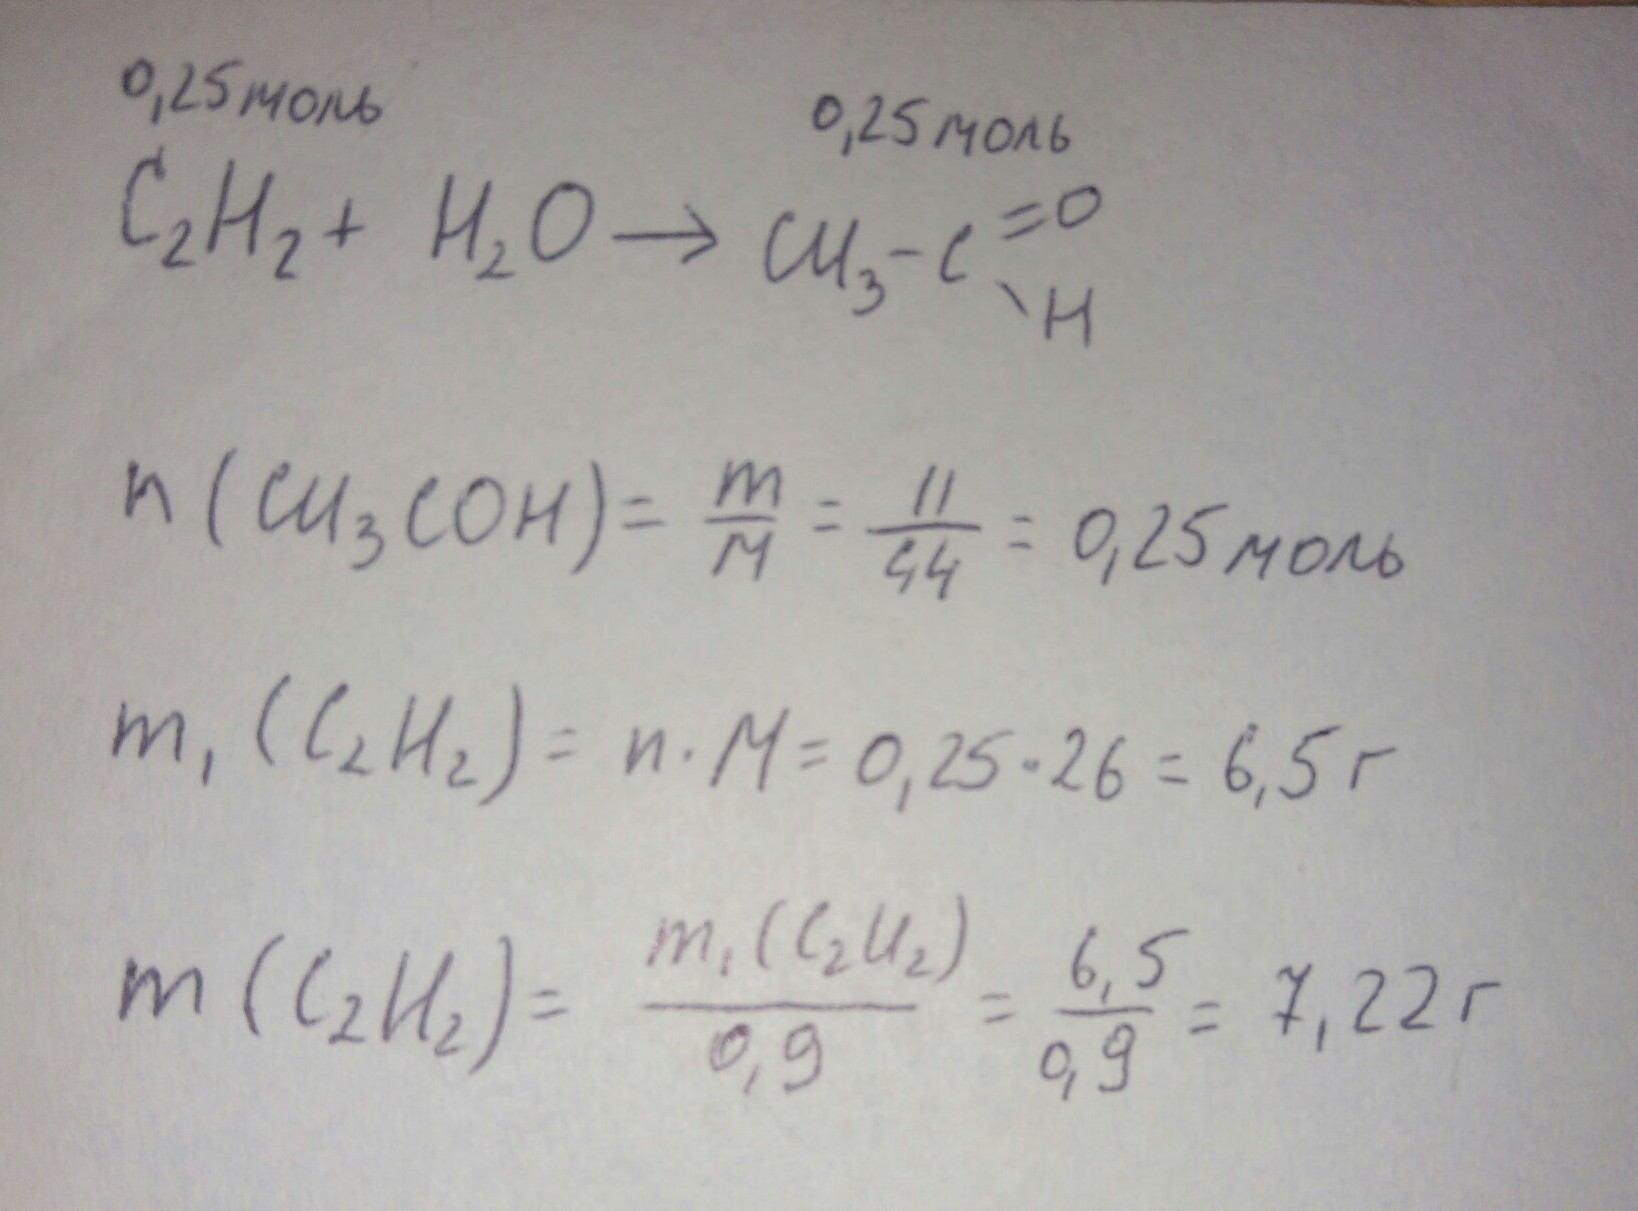 0,25 моль 0,25 моль
C₂H₂ + H₂O → CH₃-C =O \H
n (CH₃COH) = m/M = 11/44 = 0,25 моль
m₁ (C₂H₂) = n · M = 0,25 · 26 = 6,5 г
m (C₂H₂) = m₁(C₂H₂)/0,9 = 6,5/0,9 = 7,22 г